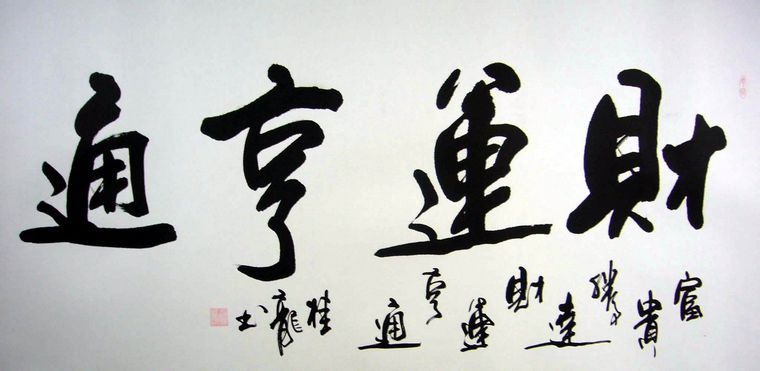 財運亨通
富貴達財運亨通
桂龍书